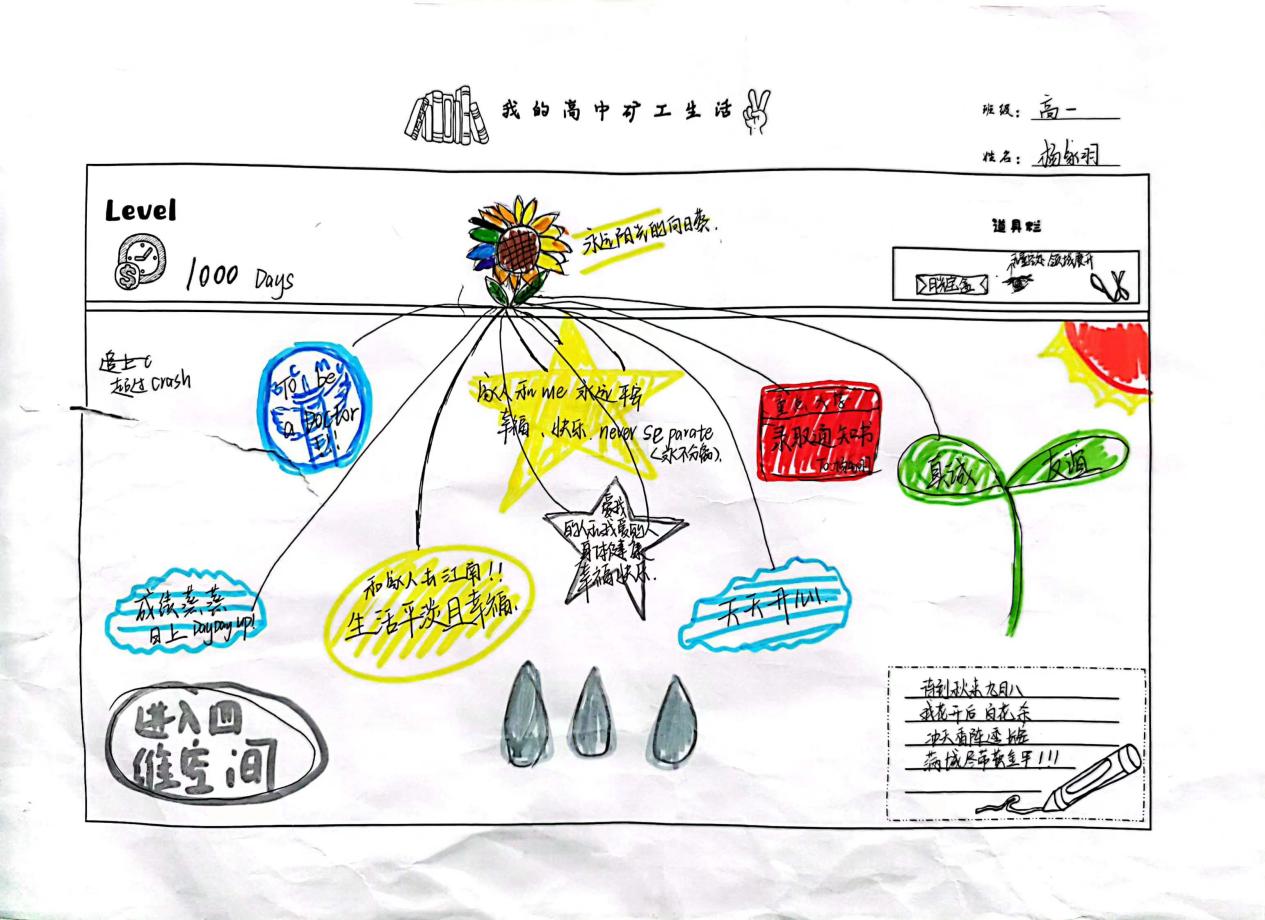 我的高中矿工生活
班级：高一
姓名：
Level
1000 Days
永远阳光的向日葵.
道具栏
追上c
超过crash
To be
a Doctor
家人和me 永远平安
幸福、快乐 never separate
(永不分离).
录取通知书
真诚
友谊
爱我
的人和我爱的人
身体健康
幸福快乐.
成绩蒸蒸
日上 DayDay up!
和家人去江南!!
生活平淡且幸福.
天天开心!.
进入四
维空间
待到秋来九月八
我花开后百花杀
冲天香阵透长安
满城尽带黄金甲!!!